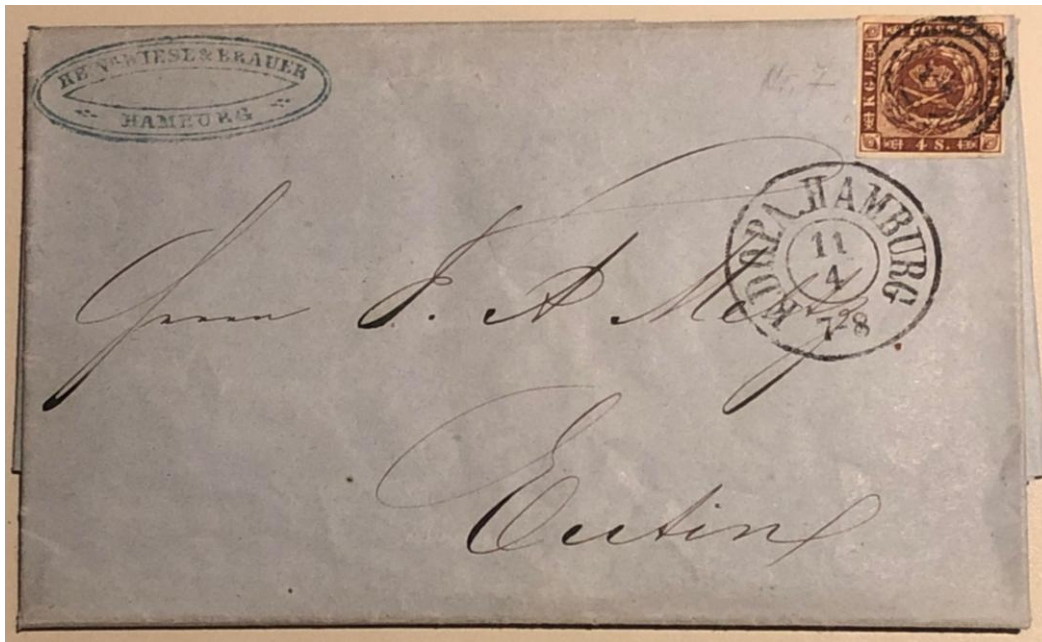 WIESE & BRAUER
HAMBURG
No. 7
KGL
4 S.
K.D.O.P.A. HAMBURG
11
4
7-8
Herrn J. A. Metz
Eutin